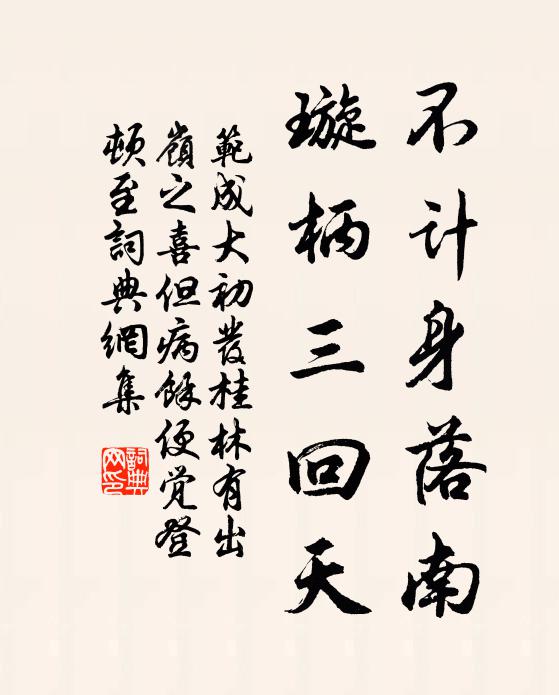 不计身落南
璇柄三回天
範成大初發桂林有出
嶺之喜但病餘便觉登
頓至詞典網集
詞典网印